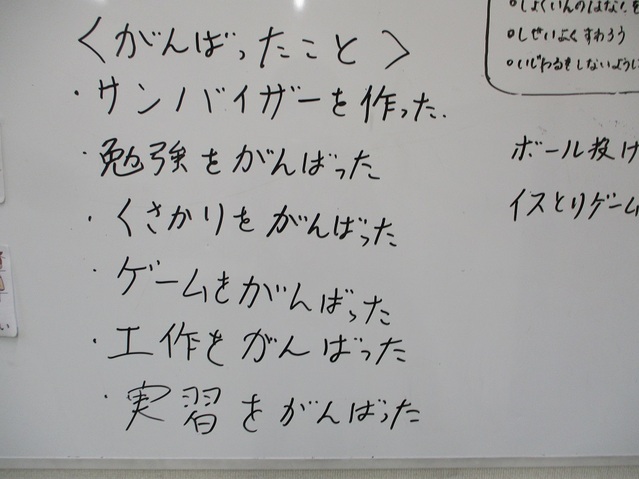 〈がんばったこと〉
・サンバイザーを作った.
・勉強をがんばった
・くさかりをがんばった
・ゲームをがんばった
・工作をがんばった
・実習をがんばった
○しょくいんのはなしを
○しせいよくすわろう
○いじわるをしないように
ボール投げ
イスとりゲーム